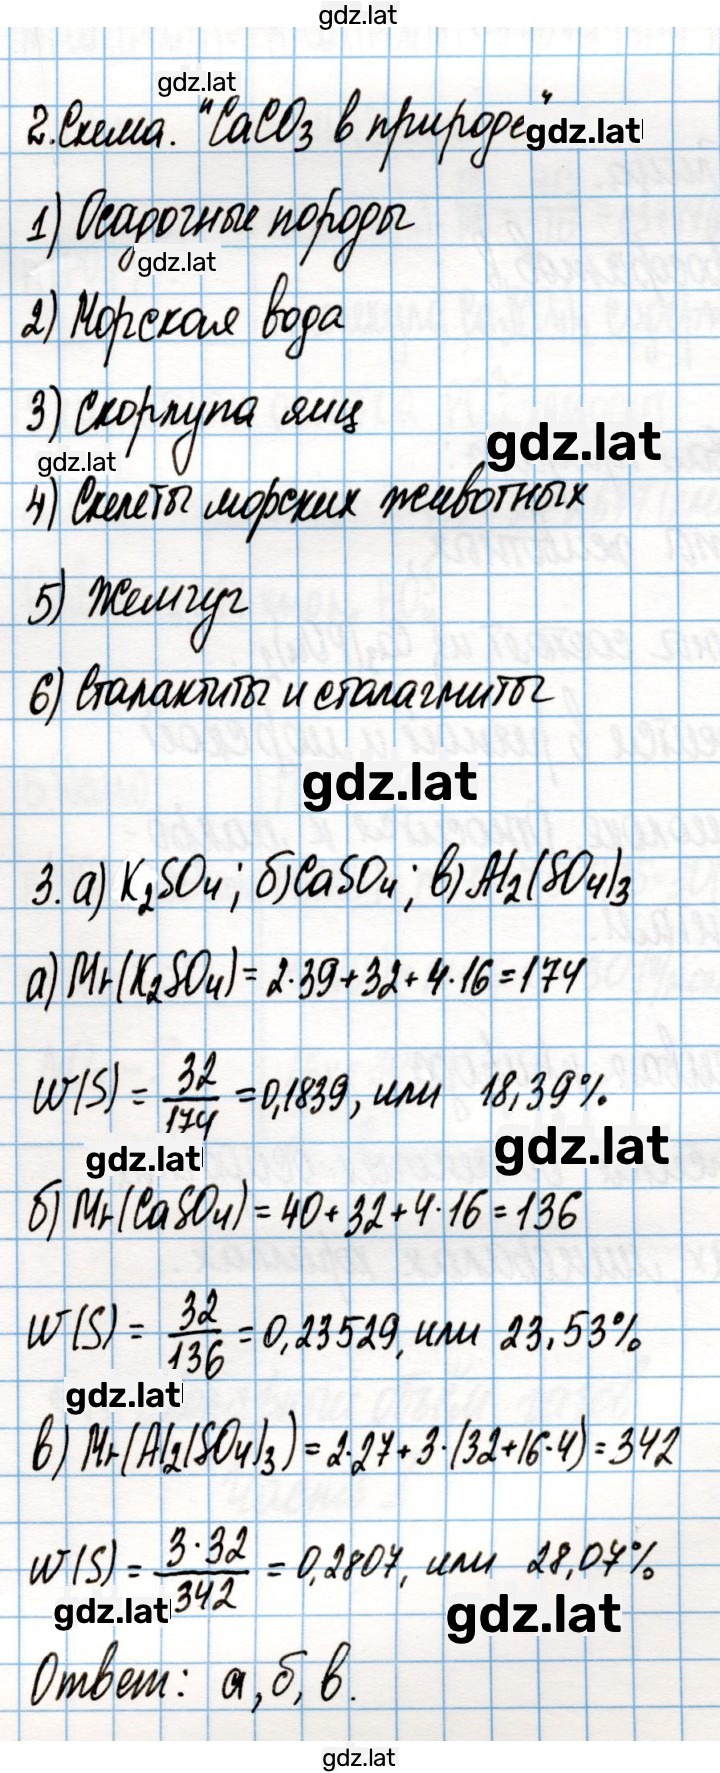 gdz.lat
gdz.lat
2. Схема. "CaCO3 в природе"
gdz.lat
1) Осадочные породы
gdz.lat
2) Морская вода
3) Скорлупа яиц
gdz.lat
gdz.lat
4) Скелеты морских животных
5) Жемчуг
6) Сталактиты и сталагмиты
gdz.lat
3. а) K2SO4; б) CaSO4; в) Al2(SO4)3
а) Mr(K2SO4) = 2·39+32+4·16=174
W(S) = 32/174 = 0,1839, или 18,39%
gdz.lat
gdz.lat
б) Mr(CaSO4) = 40+32+4·16=136
W(S) = 32/136 = 0,23529, или 23,53%
gdz.lat
в) Mr(Al2(SO4)3) = 2·27+3·(32+16·4)=342
W(S) = 3·32/342 = 0,2807, или 28,07%
gdz.lat
gdz.lat
Ответ: а, б, в.
gdz.lat